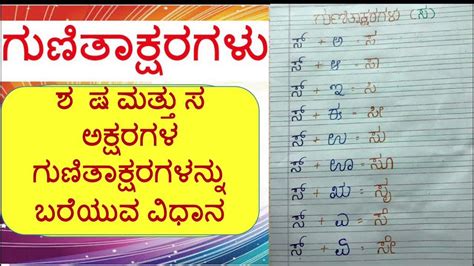 ಗುಣಿತಾಕ್ಷರಗಳು
ಶ ಷ ಮತ್ತು ಸ
ಅಕ್ಷರಗಳ
ಗುಣಿತಾಕ್ಷರಗಳನ್ನು
ಬರೆಯುವ ವಿಧಾನ
ಗುಣಿತಾಕ್ಷರಗಳು (ಸ)
ಸ್ + ಅ = ಸ
ಸ್ + ಆ = ಸಾ
ಸ್ + ಇ = ಸಿ
ಸ್ + ಈ = ಸೀ
ಸ್ + ಉ = ಸು
ಸ್ + ಊ = ಸೂ
ಸ್ + ಋ = ಸೃ
ಸ್ + ಎ = ಸೆ
ಸ್ + ಏ = ಸೇ